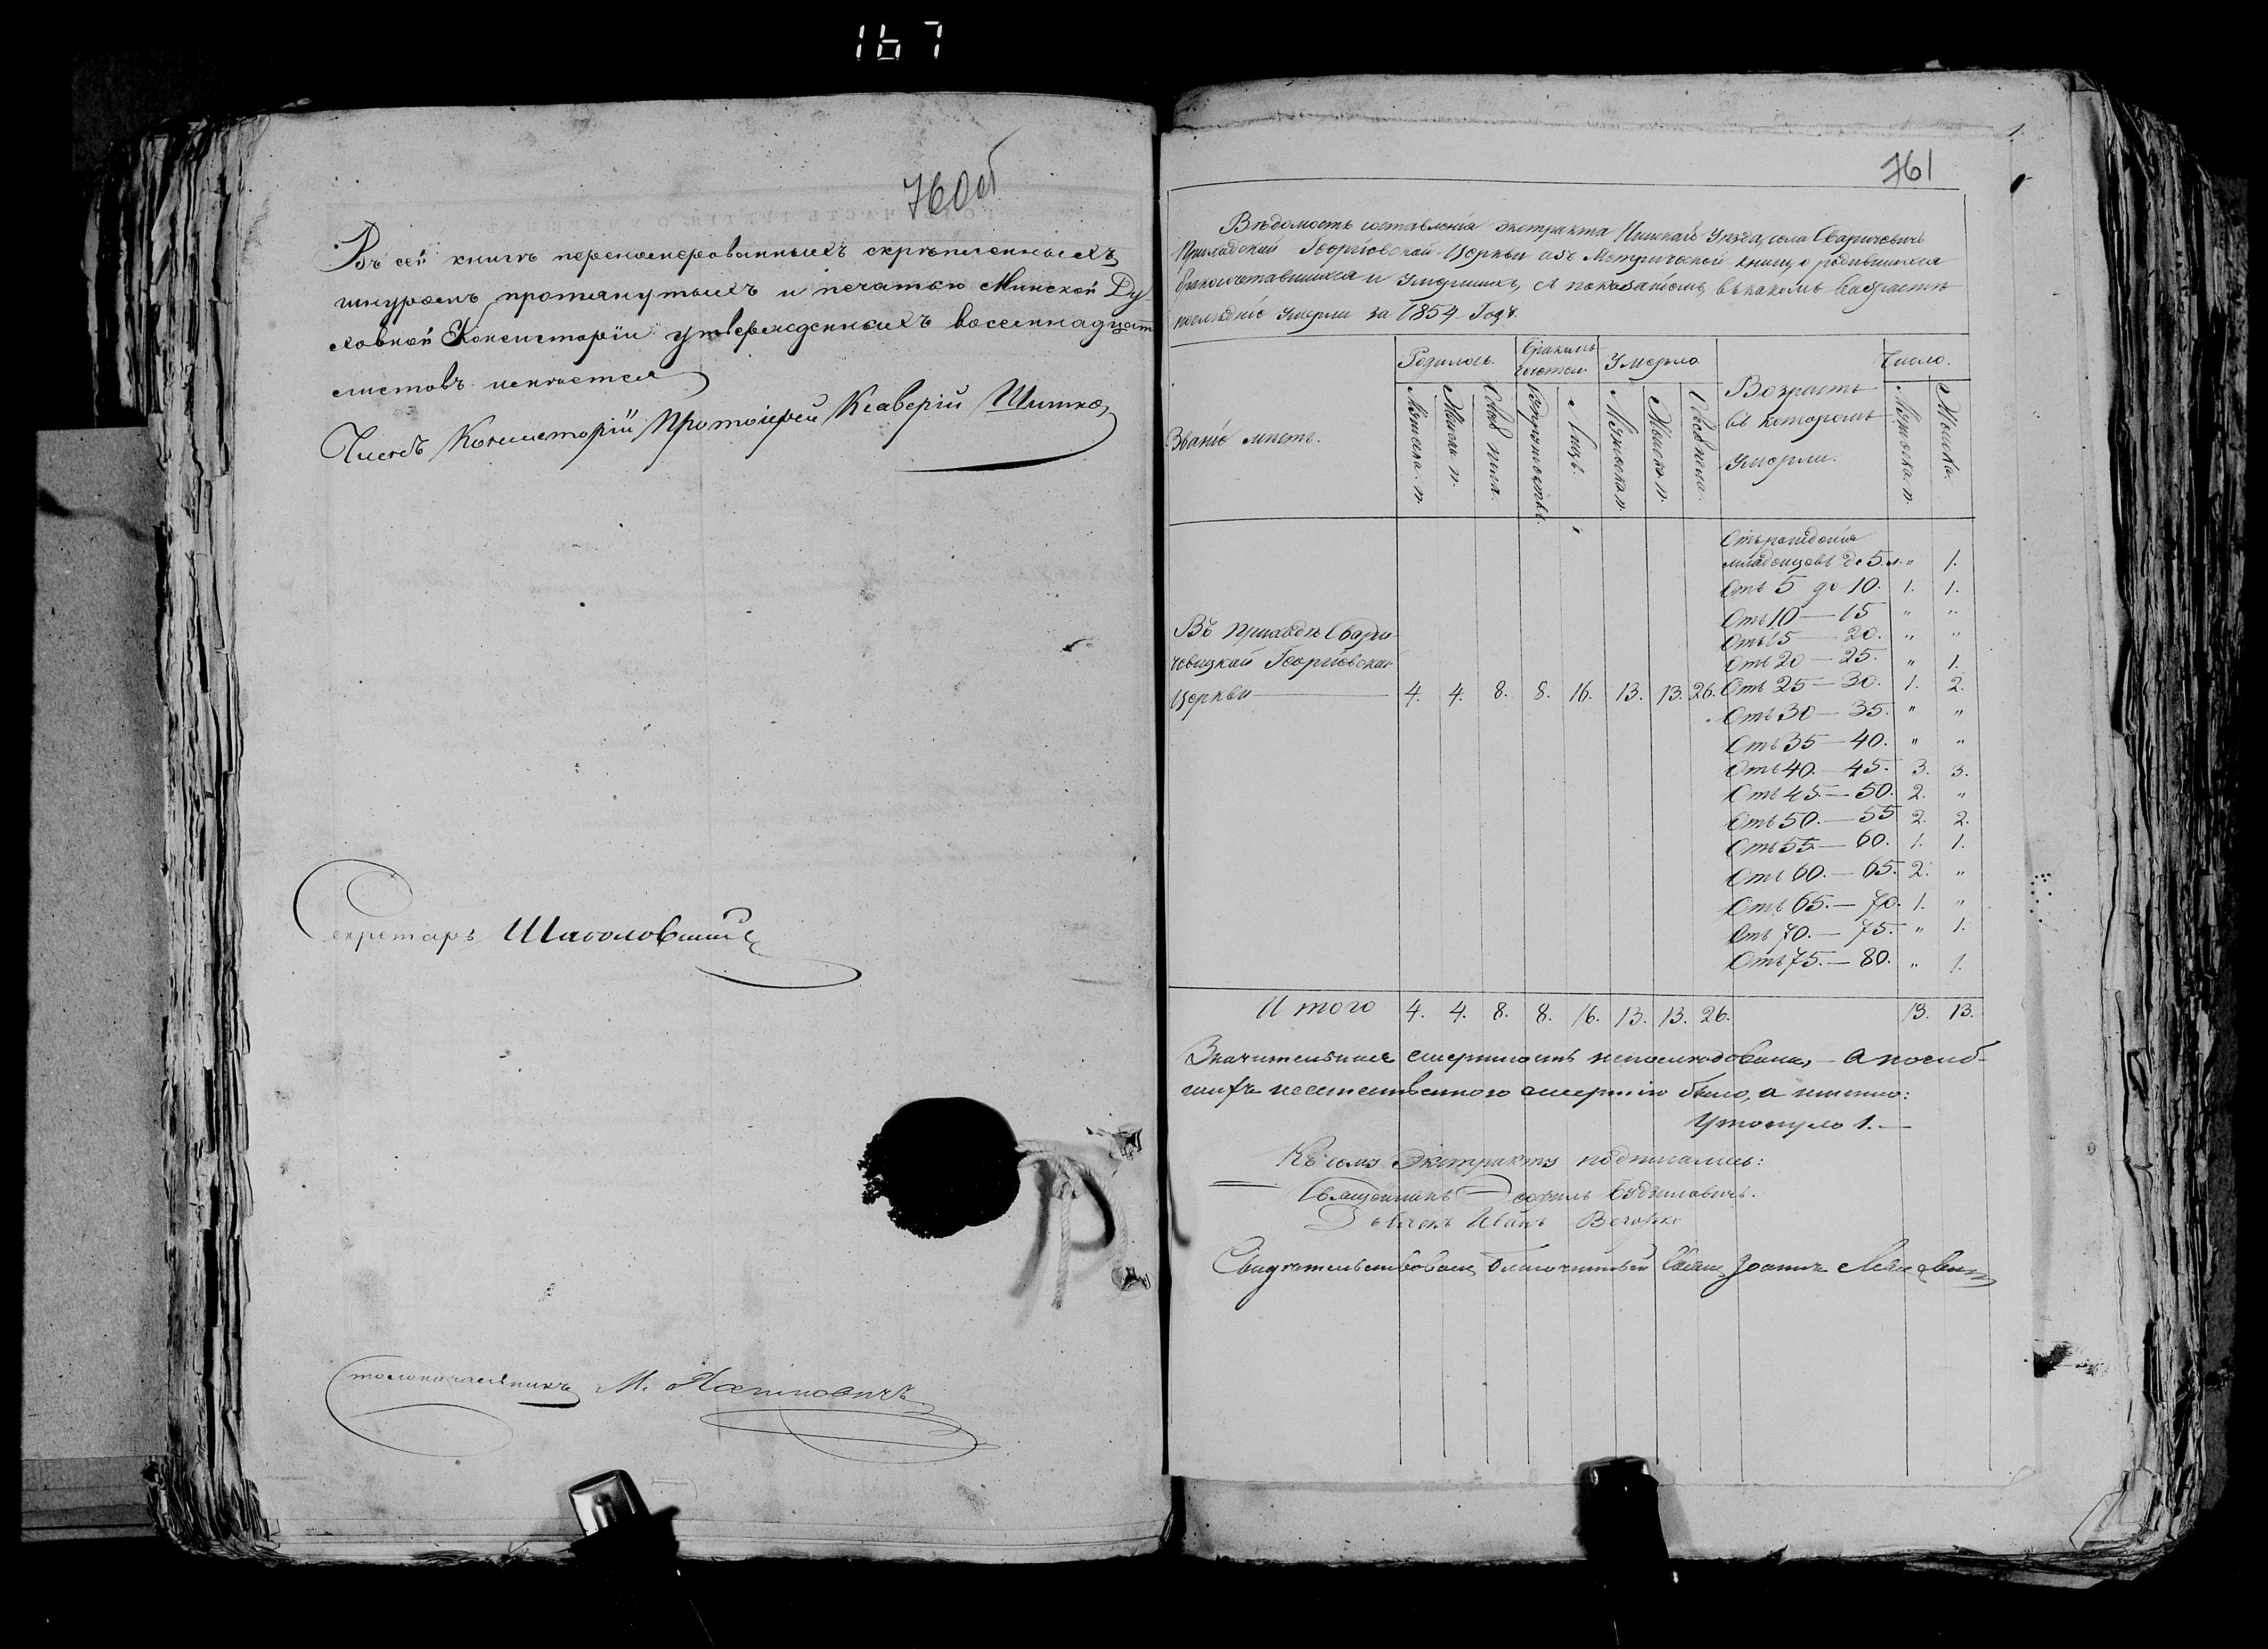 167
760об
Въ сей книгѣ перенумерованныхъ скрѣпленныхъ
шнуромъ протянутыхъ и печатью Минской Ду
ховной Консисторіи утвержденныхъ восемнадцать
листовъ имѣется
Членъ Консисторіи Протоіерей Ксаверій
Секретарь
Столоначальникъ М.
1.
761
Вѣдомость составленія экстракта Пинскаго Уѣзда, села Сваричевичъ
Приходской Георгіовской Церкви изъ Метрической книги, о родившихся
бракосочетавшихся и Умершихъ, съ показаніомъ, въ какомъ возрастѣ
послѣдніе Умерли за 1854 Годъ.
Званіе мѣстъ.
Родилось.
Мужеска п.
Женска п.
Обоего пола.
Бракомъ
сочетал.
Лицъ.
Умерло
Мужеска п.
Женска п.
Обоего пола.
Возрастъ
въ которомъ
Умерли.
Число.
Мужеска п.
Женска.
Въ приходѣ Свари
чевицкой Георгіовской
Церкви 4. 4. 8. 8. 16. 13. 13. 26.
Отъ рожденія
младенцевъ до 5.л. " 1.
Отъ 5 до 10. 1. 1.
Отъ 10 — 15 " "
Отъ 15 — 20. " "
Отъ 20 — 25. " 1.
Отъ 25 — 30. 1. 2.
Отъ 30 — 35. " "
Отъ 35 — 40. " "
Отъ 40. — 45. 3. 3.
Отъ 45. — 50. 2. "
Отъ 50. — 55 2. 2.
Отъ 55. — 60. 1. 1.
Отъ 60. — 65. 2. "
Отъ 65. — 70. 1. "
Отъ 70. — 75. " 1.
Отъ 75. — 80. " 1.
Итого 4. 4. 8. 8. 16. 13. 13. 26. 13. 13.
Значительная смертность непослѣдовала, — а погиб-
шихъ неестественного смертію было, а именно:
Утонуло 1. —
Къ сему Экстракту подписались:
Священникъ
Дьячекъ Иванъ Вечорко
Свидѣтельствовалъ Благочинный Іоаннъ